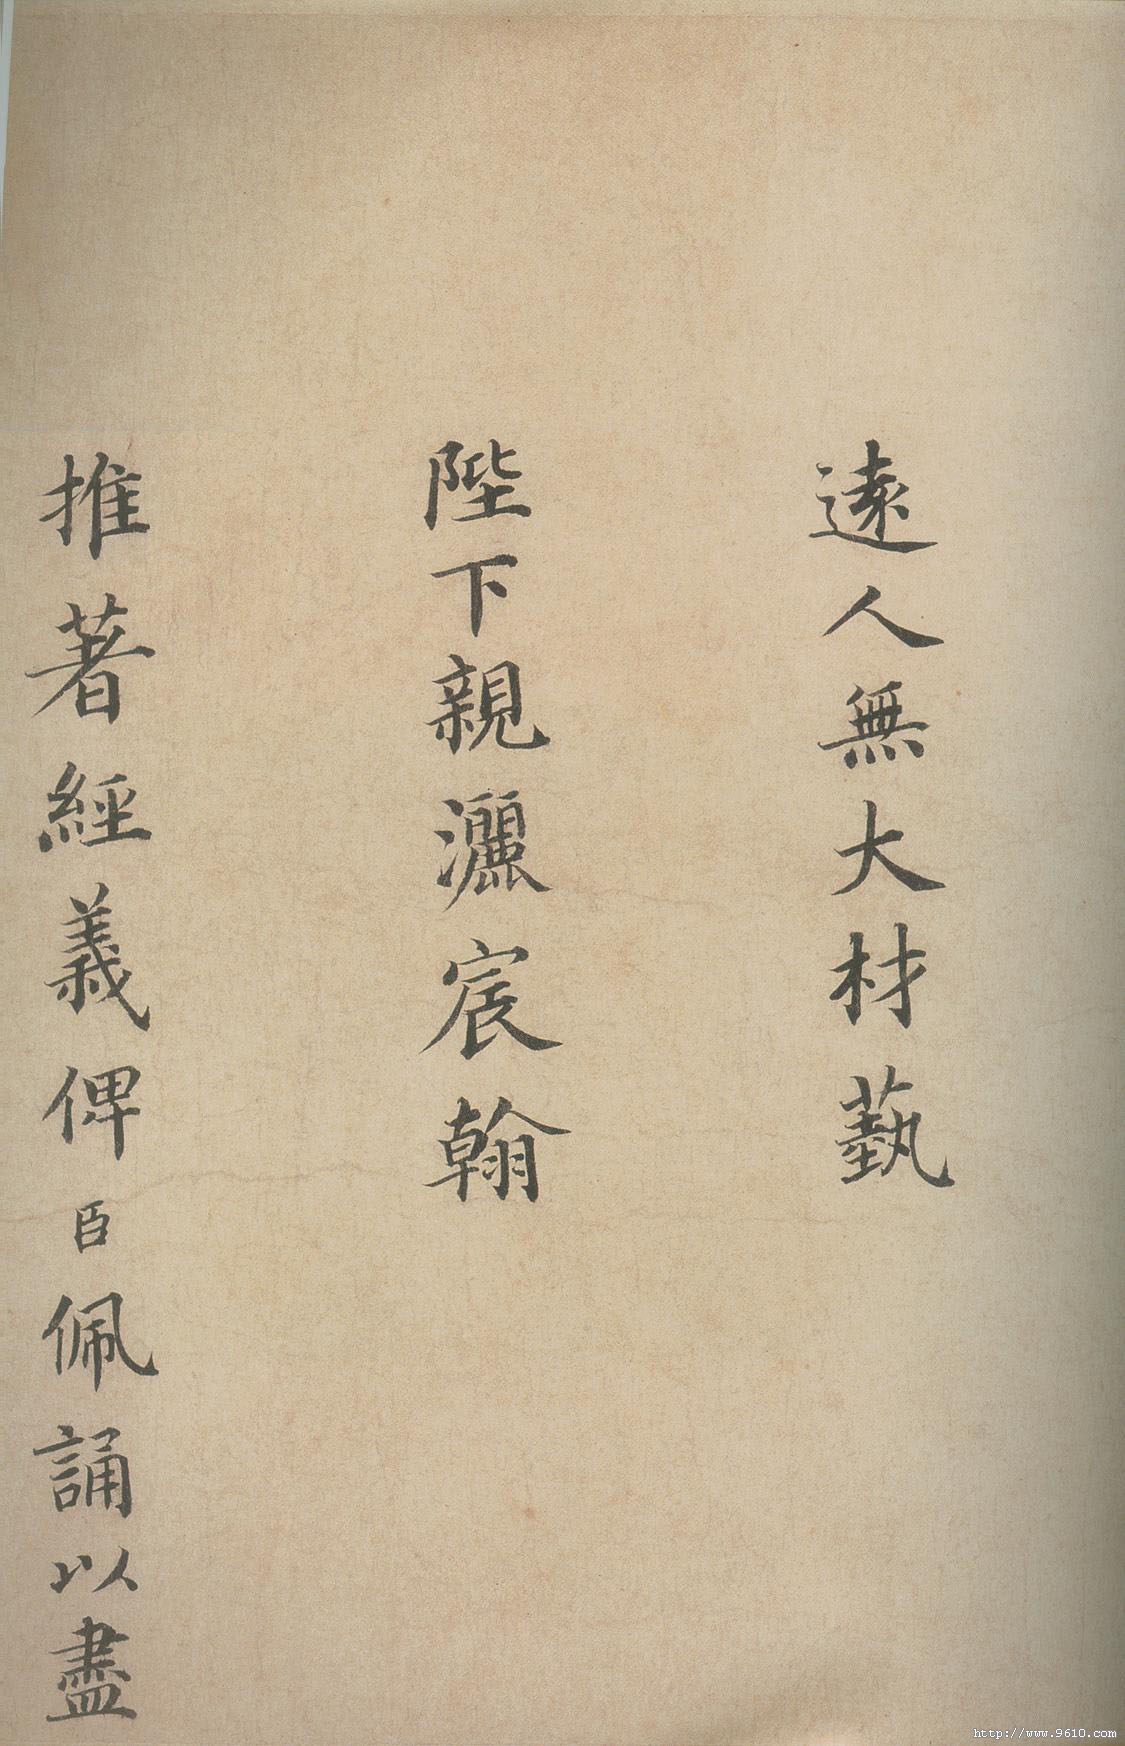 遠人無大材藝
陛下親灑宸翰
推著經義俾臣佩誦以盡
http://www.9610.com